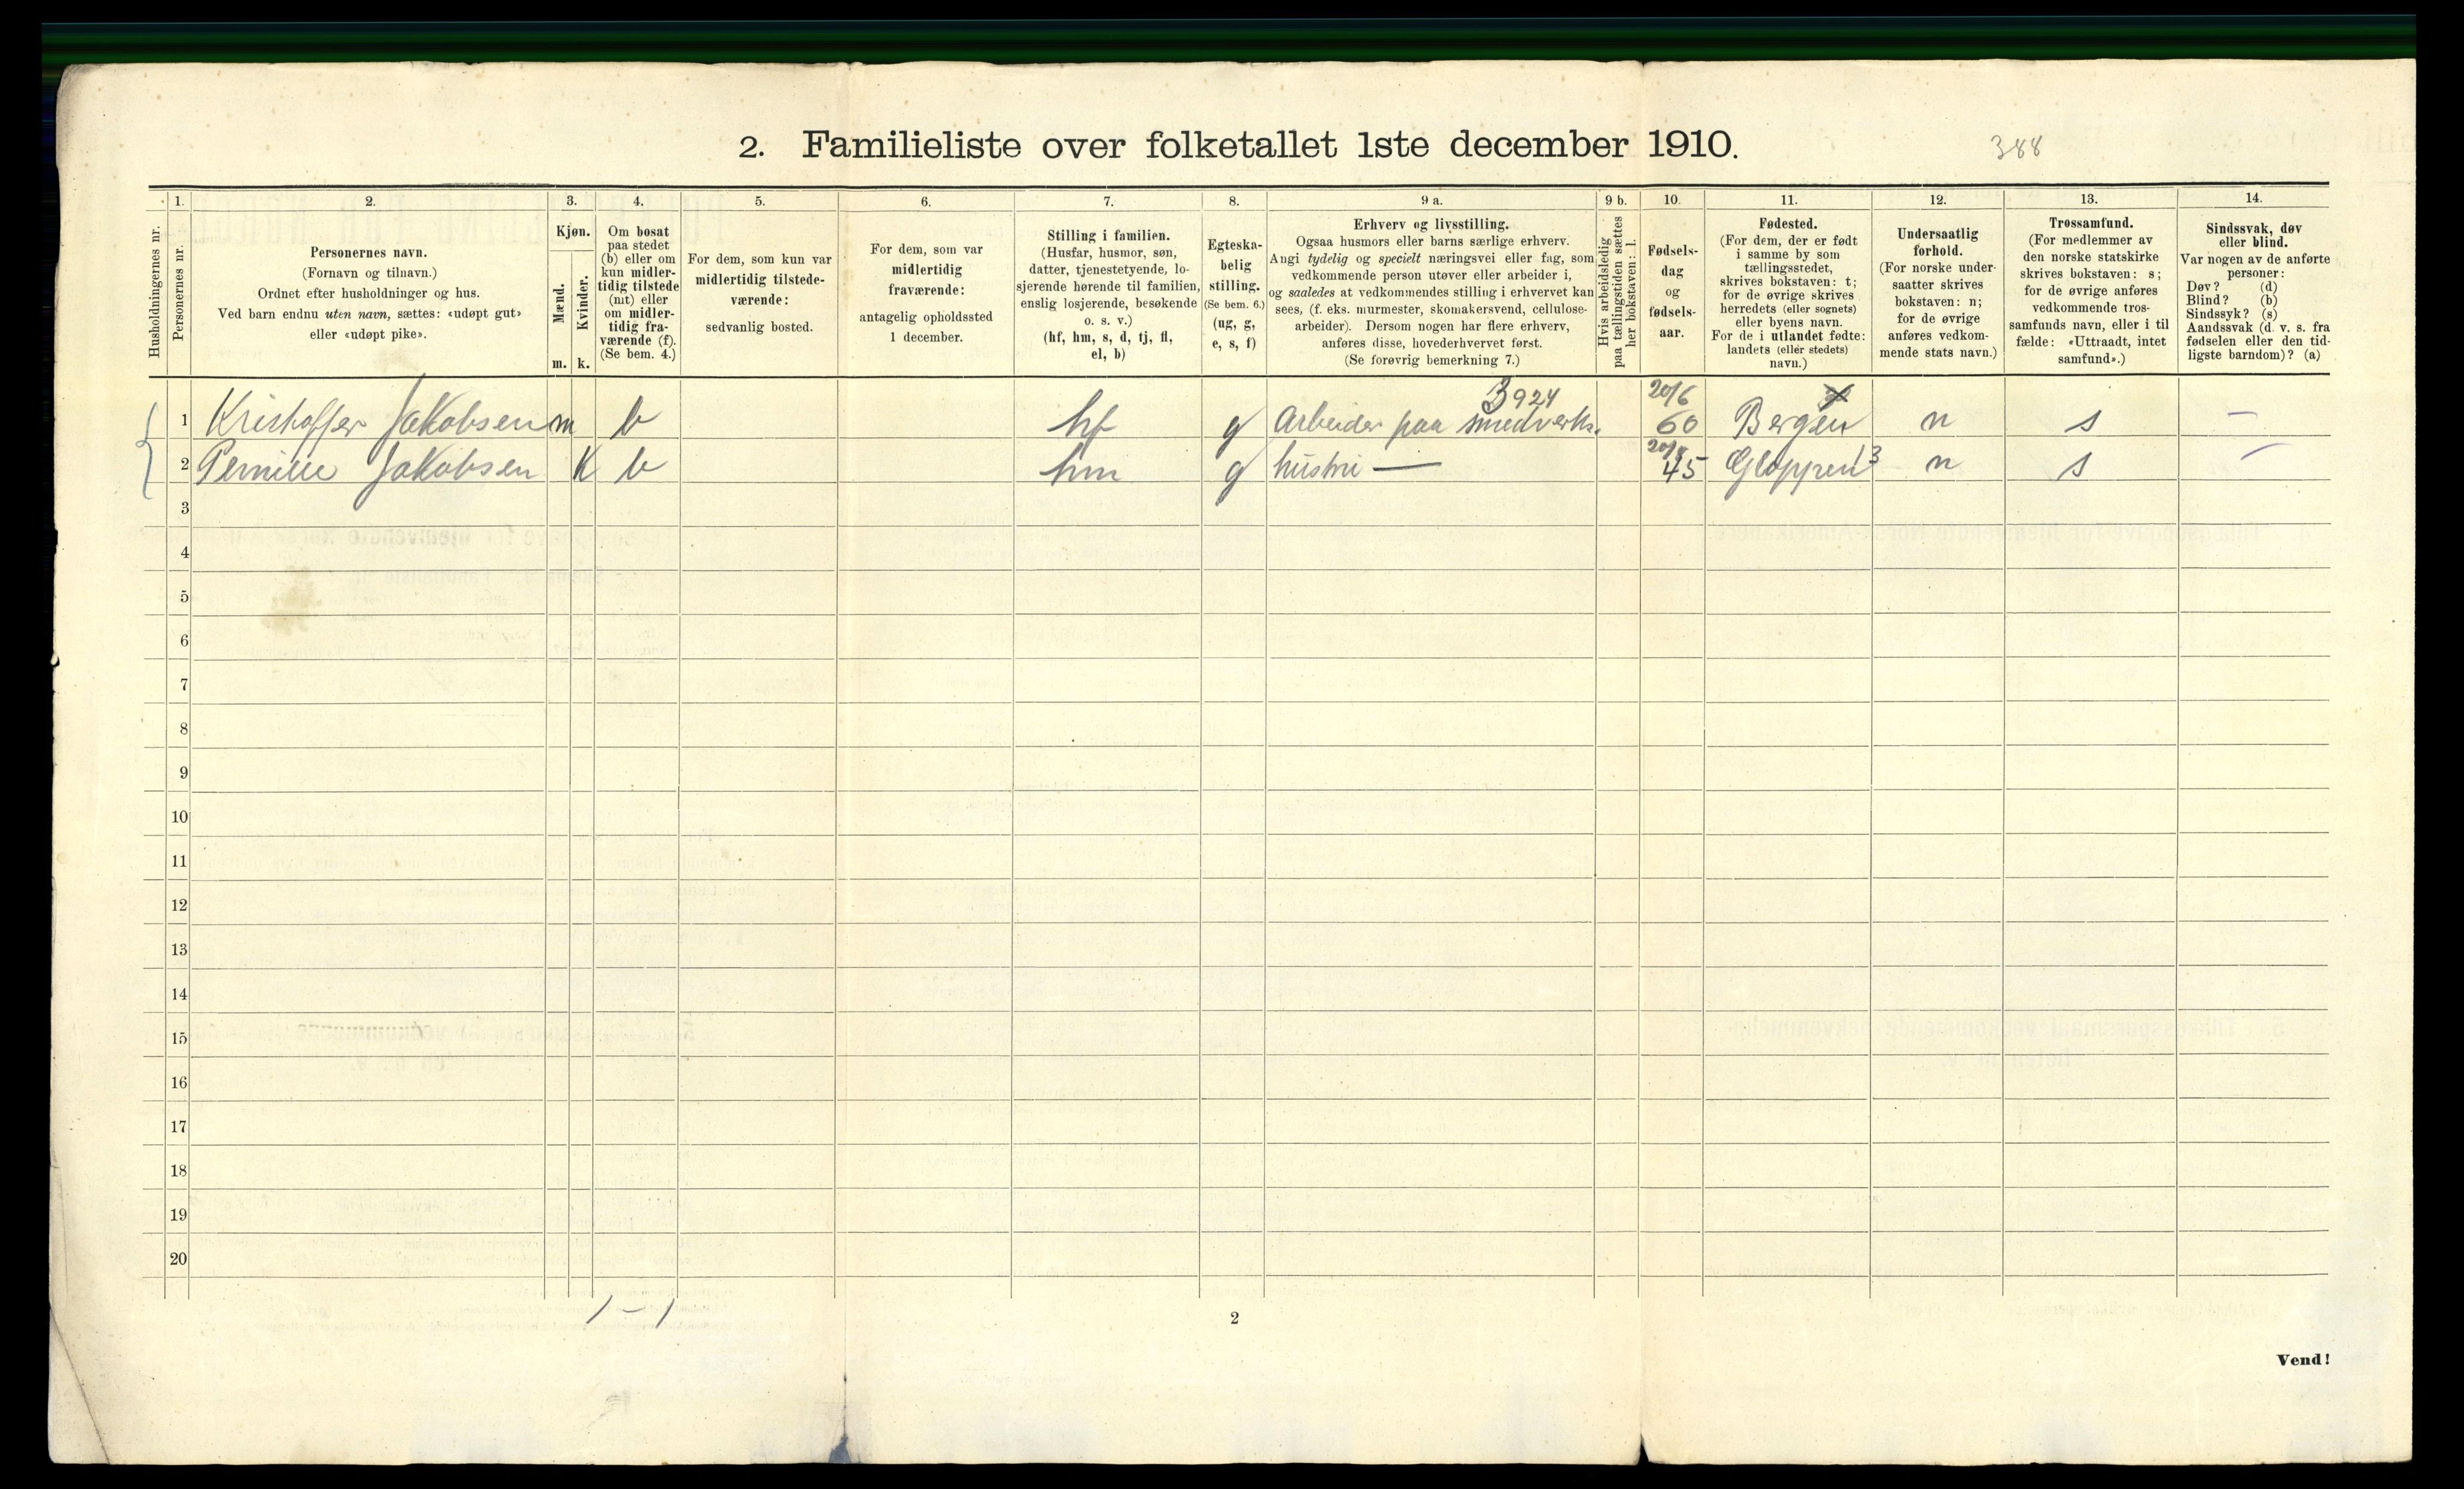 2. Familieliste over folketallet 1ste december 1910.
388
Husholdningernes nr.
1.
Personernes nr.
2.
Personernes navn.
(Fornavn og tilnavn.)
Ordnet efter husholdninger og hus.
Ved barn endnu uten navn, sættes: «udøpt gut»
eller «udøpt pike».
3.
Kjøn.
Mænd.
Kvinder.
m. k.
4.
Om bosat
paa stedet
(b) eller om
kun midler-
tidig tilstede
(mt) eller
om midler-
tidig fra-
værende (f).
(Se bem. 4.)
5.
For dem, som kun var
midlertidig tilstede-
værende:
sedvanlig bosted.
6.
For dem, som var
midlertidig
fraværende:
antagelig opholdssted
1 december.
7.
Stilling i familien.
(Husfar, husmor, søn,
datter, tjenestetyende, lo-
sjerende hørende til familien,
enslig losjerende, besøkende
o. s. v.)
(hf, hm, s, d, tj, fl,
el, b)
8.
Egteska-
belig
stilling.
(Se bem. 6.)
(ug, g,
e, s, f)
9 a.
Erhverv og livsstilling.
Ogsaa husmors eller barns særlige erhverv.
Angi tydelig og specielt næringsvei eller fag, som
vedkommende person utøver eller arbeider i,
og saaledes at vedkommendes stilling i erhvervet kan
sees, (f. eks. murmester, skomakersvend, cellulose-
arbeider). Dersom nogen har flere erhverv,
anføres disse, hovederhvervet først.
(Se forøvrig bemerkning 7.)
9 b.
Hvis arbeidsledig
paa tællingstiden sættes
her bokstaven: l.
10.
Fødsels-
dag
og
fødsels-
aar.
11.
Fødested.
(For dem, der er født
i samme by som
tællingsstedet,
skrives bokstaven: t;
for de øvrige skrives
herredets (eller sognets)
eller byens navn.
For de i utlandet fødte:
landets (eller stedets)
navn.)
12.
Undersaatlig
forhold.
(For norske under-
saatter skrives
bokstaven: n;
for de øvrige
anføres vedkom-
mende stats navn.)
13.
Trossamfund.
(For medlemmer av
den norske statskirke
skrives bokstaven: s;
for de øvrige anføres
vedkommende tros-
samfunds navn, eller i til
fælde: «Uttraadt, intet
samfund».)
14.
Sindssvak, døv
eller blind.
Var nogen av de anførte
personer:
Døv? (d)
Blind? (b)
Sindssyk? (s)
Aandssvak (d. v. s. fra
fødselen eller den tid-
ligste barndom)? (a)
3924 20/6
1 Kristoffer Jakobsen m b hf g Arbeider paa smedverks. 60 Bergen n s —
2 Pernille Jakobsen K b hm g hustru — 45 Gloppen 3 n s —
3
4
5
6
7
8
9
10
11
12
13
14
15
16
17
18
19
20
1 – 1
2
Vend!